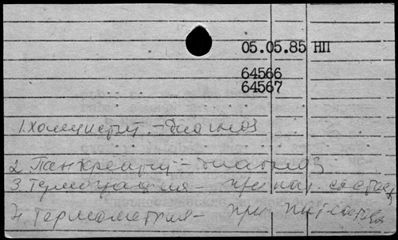 05.05.85 НП
64566
64567
1. Холецистит. - Диагноз
2. Панкреатит - диагноз
3. Термография - при
4. Термометрия - при